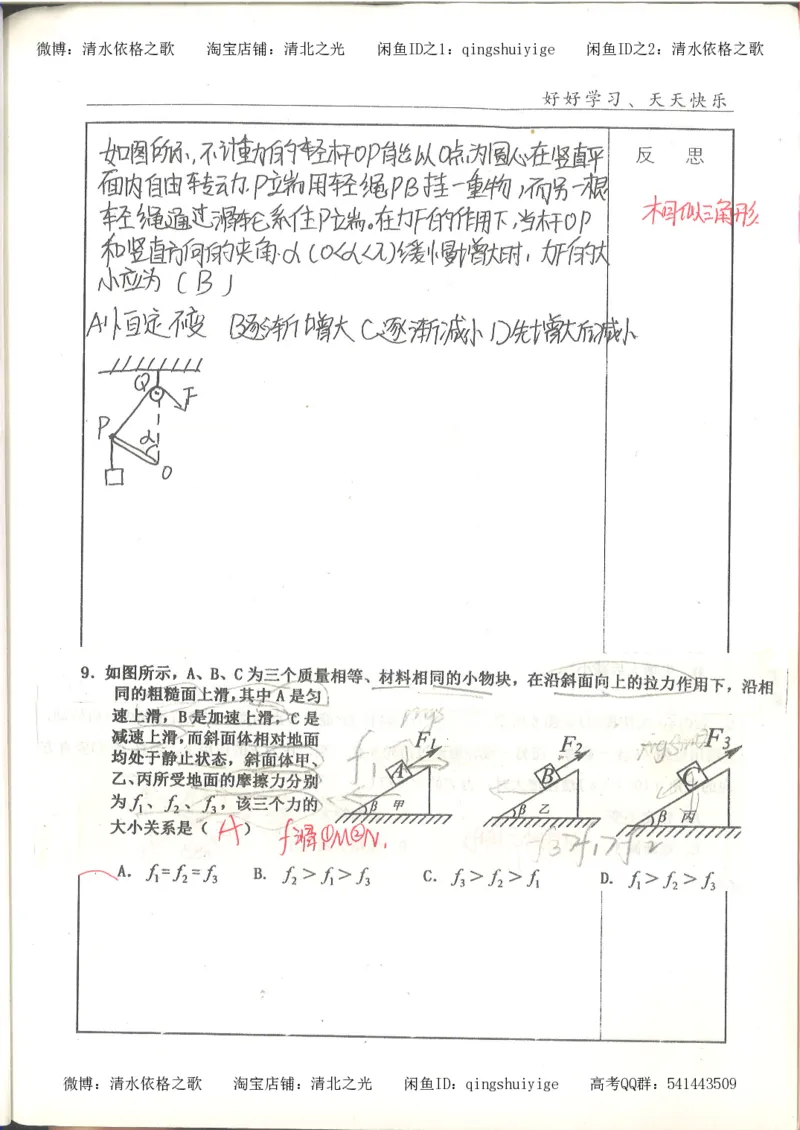 微博：清水依格之歌 淘宝店铺：清北之光 闲鱼ID之1：qingshuiyige 闲鱼ID之2：清水依格之歌
好好学习、天天快乐
如图所示,不计重力的轻杆OP能以O点为圆心在竖直平
面内自由转动.P端用轻绳PB挂一重物,而另一根
轻绳通过滑轮系住P端。在力F的作用下,当杆OP
和竖直方向的夹角α(0<α<π)缓慢增大时,力F的大
小应为(B)
A.恒定不变 B逐渐增大 C.逐渐减小 D先增大后减小
反 思
相似三角形
Q
F
P
α
O
9．如图所示，A、B、C 为三个质量相等、材料相同的小物块，在沿斜面向上的拉力作用下，沿相
同的粗糙面上滑，其中 A 是匀
速上滑，B 是加速上滑，C 是
减速上滑，而斜面体相对地面
均处于静止状态，斜面体甲、
乙、丙所受地面的摩擦力分别
为 f₁、f₂、f₃，该三个力的
大小关系是（ A ）
f滑①M②N.
F₁
A
β 甲
F₂
B
β 乙
mgsinβ
F₃
C
β 丙
f₃>f₁>f₂
A．f₁=f₂=f₃ B．f₂＞f₁＞f₃ C．f₃＞f₂＞f₁ D．f₁＞f₂＞f₃
微博：清水依格之歌 淘宝店铺：清北之光 闲鱼ID：qingshuiyige 高考QQ群：541443509